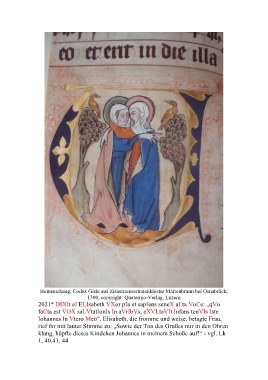 eo et erit in die illa
Heimsuchung, Codex Gisle aus Zisterzienserinnenkloster Marienbrunn bei Osnabrück,
1300, copyright: Quaternio-Verlag, Luzern
2021* DIXIt eI ELIsabeth VXor pIa et sapIens seneX aLta VoCe: „qVo
faCta est VOX saLVtatIonIs In aVrIbVs, eXVLtaVIt Infans tenVIs Iste
Iohannes In Vtero Meo“. Elisabeth, die fromme und weise, betagte Frau,
rief ihr mit lauter Stimme zu: „Sowie der Ton des Grußes mir in den Ohren
klang, hüpfte dieses Kindchen Johannes in meinem Schoße auf!“ - vgl. Lk
1, 40.41. 44